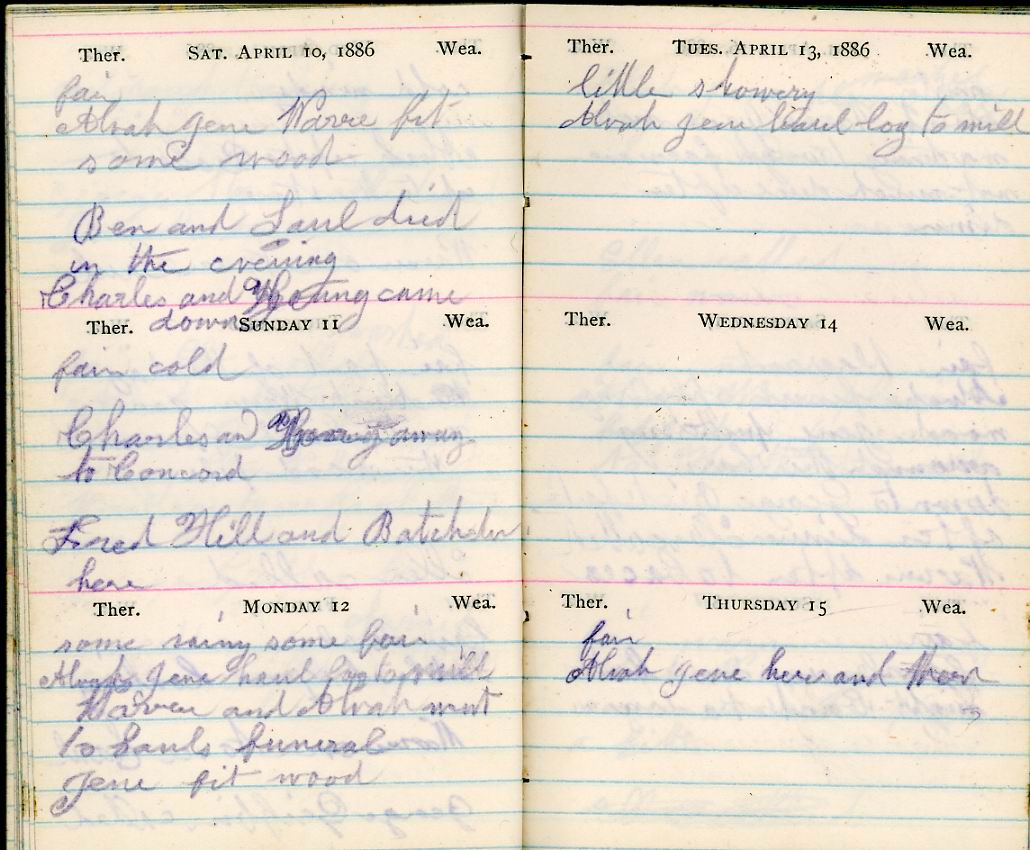 Ther. SAT. APRIL 10, 1886 Wea.
fair
Alvah Gene Warre fit
some wood
Ben and Saul died
in the evening
Charles and came
down
Ther. SUNDAY 11 Wea.
fair cold
Charles an away
to Concord
Fred Hill and Batchelder
here
Ther. MONDAY 12 Wea.
some rainy some fair
Alvah Gene haul log to mill
Warren and Alvah went
to Sauls funeral
Gene fit wood
Ther. TUES. APRIL 13, 1886 Wea.
little showery
Alvah gene haul log to mill
Ther. WEDNESDAY 14 Wea.
Ther. THURSDAY 15 Wea.
fair
Alvah gene here and theer